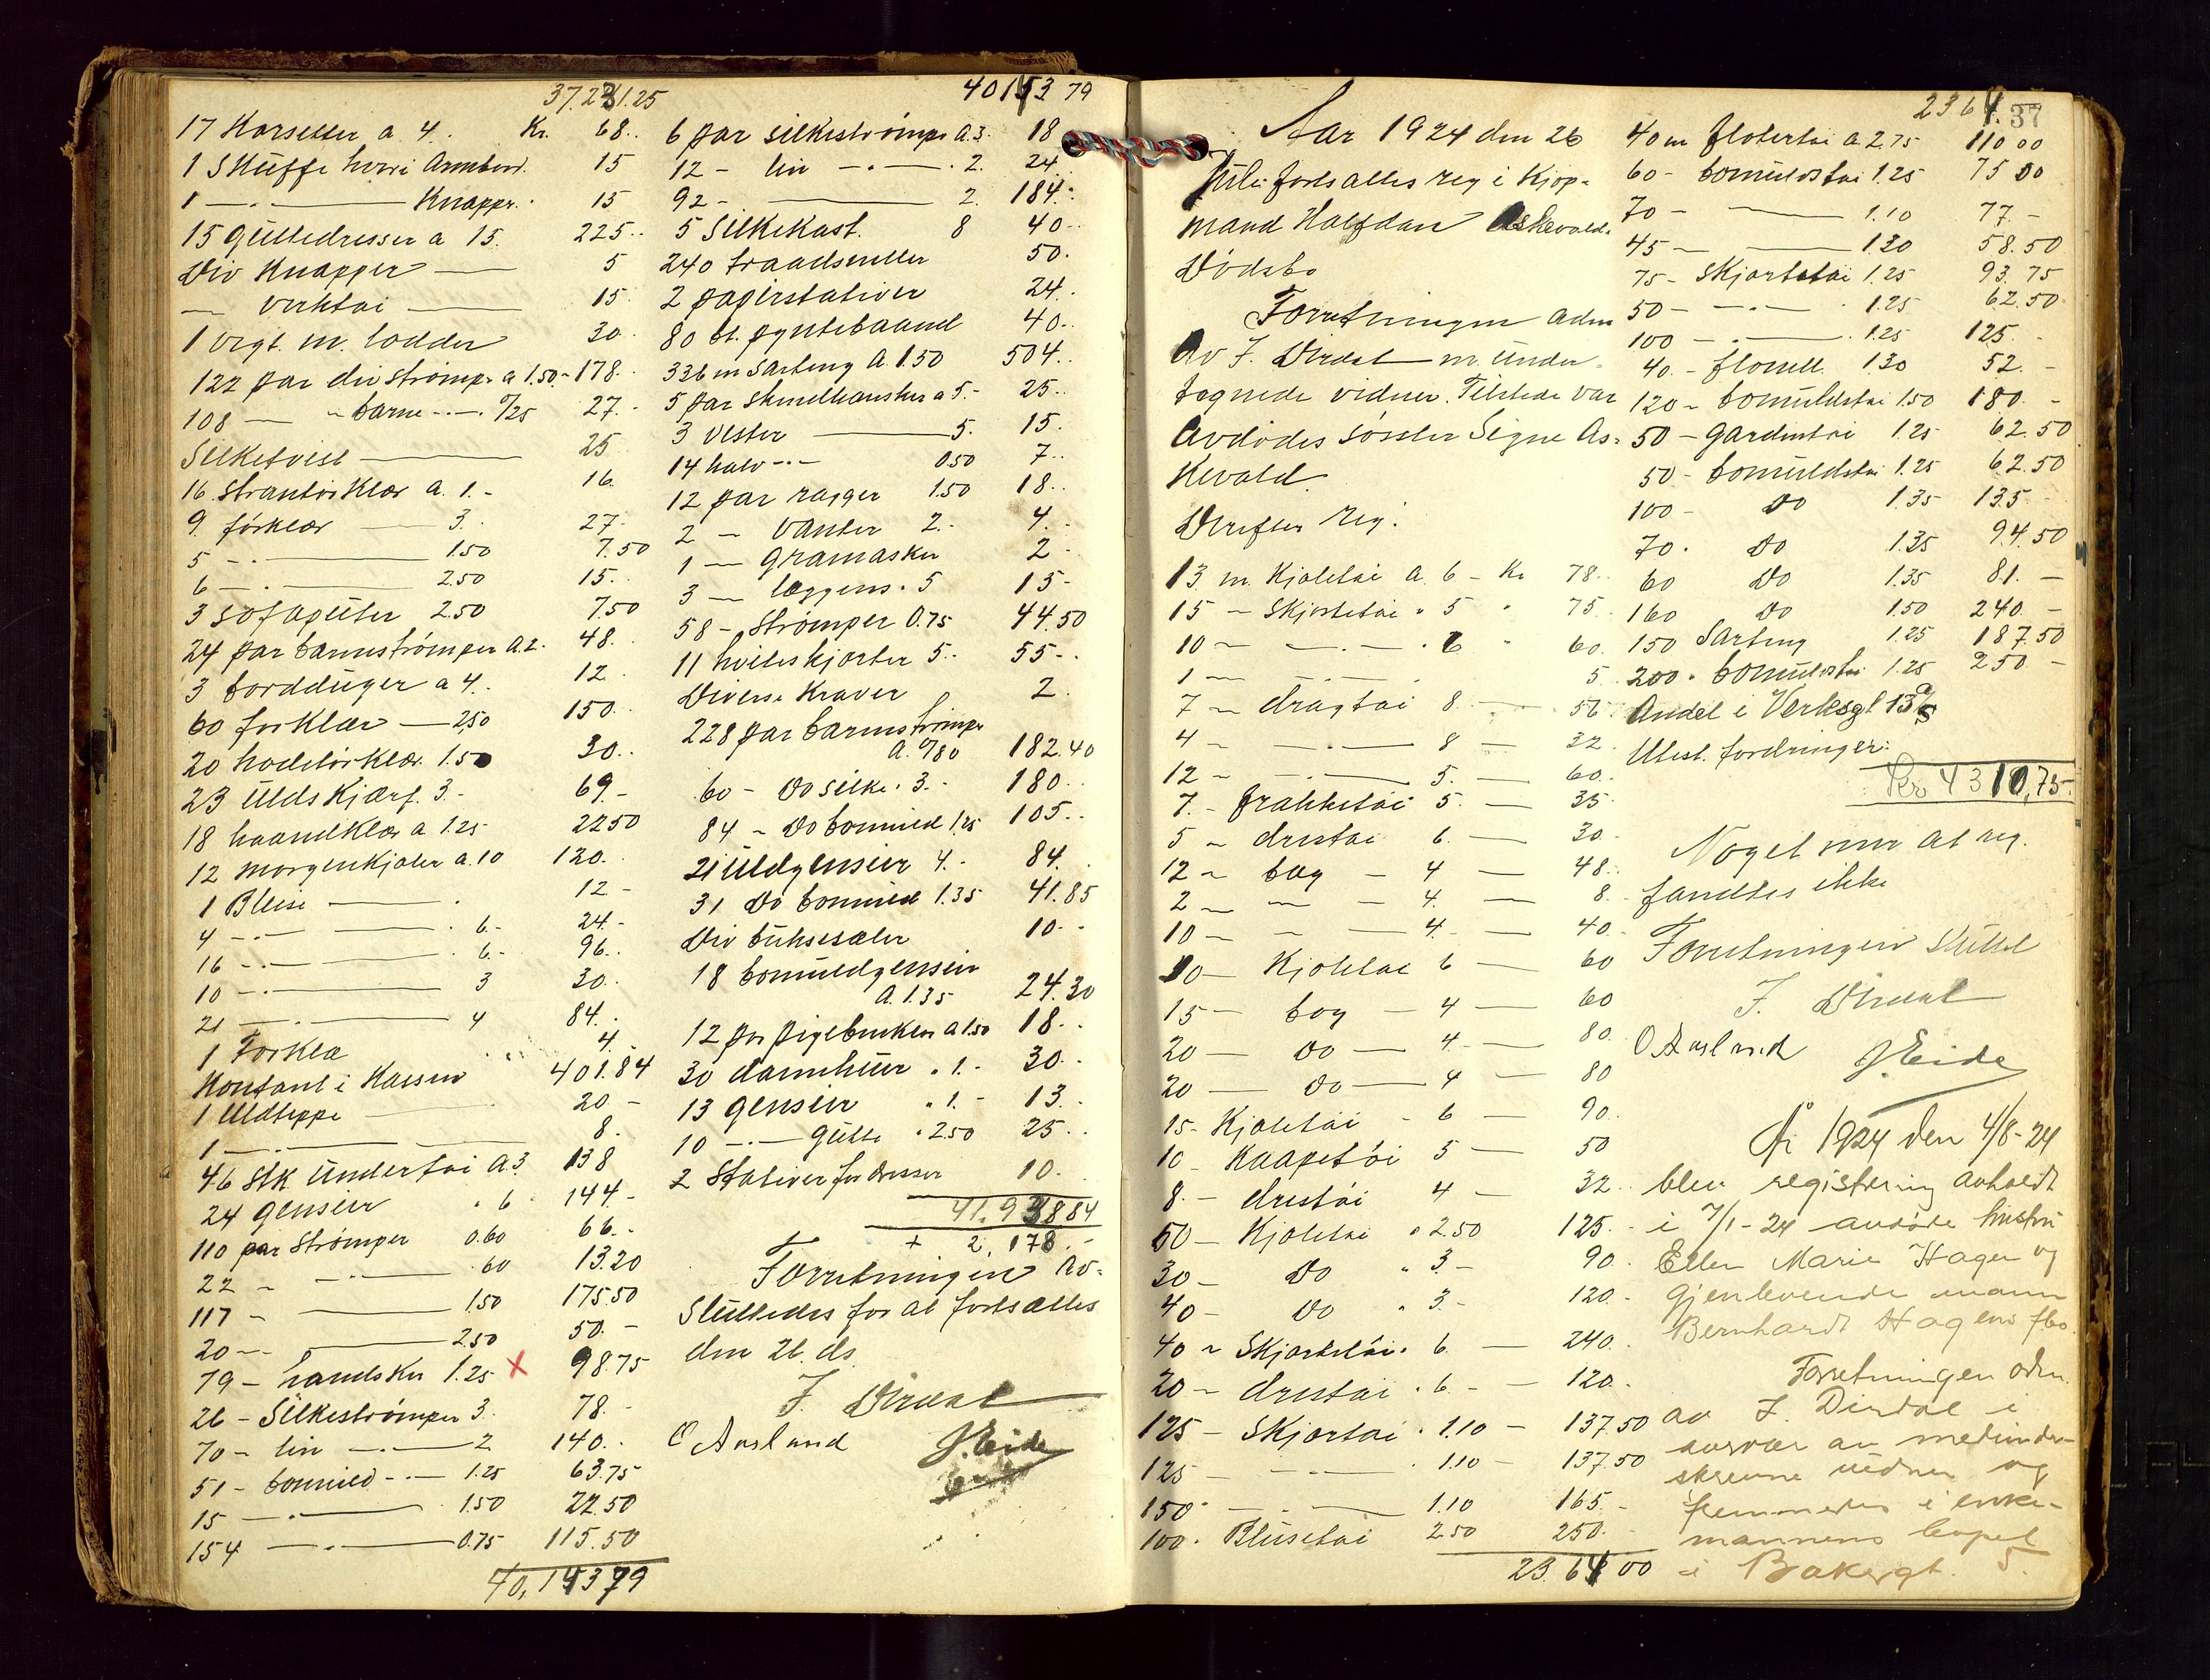 37.231.25
17 Korsetter a 4. Kr. 68..
1 Skuffe herri Armbond. 15
1 —.— Knappr. 15
15 Guttedresser a 15. 225..
Div Knapper — 5
— Verktøi — 15
1 Vegt m. Lodder 30.
122 par div strømper a 1.50.- 178..
108 — - barne -.- 0/25 27.-
Silketvist — 25
16. Strantørklær a. 1.- 16.
9 forklær — 3. 27-
5 -.— 1.50 7.50
6 -.— 2.50 15.
3 Sofaputer 2.50 7.50
24 par barnestrømper a.2- 48.
3 Bordduger a 4.. 12
60 forklær — 2,50 150.
20 hodetørklær. 1.50 30..
23 Uldskjærf. 3- 69.-
18 haandklær a 1.25 22.50
12 morgenkjoler a. 10 120.
1 Bluse — 12-
4 -.— 6.- 24.-
16 -.— 6.- 96..
10 -.— 3 30..
21 -.— 4 84.
1 Forklæ 4.
Kontant i Kassen 401.84
1 Uldteppe — 20-
1 -.— 8.
46 Stk Undertøi a 3. 138
24 gensier " 6 144-
110 par Strømper 0.60 66.-
22 - -.— .60 13.20
117 - — 1.50 175.50
20 - — 2.50 50.-
79 - handsker 1.25 x 98.75
26 - Silkestrømper 3. 78.-
70 - lin -.— 2 140..
51 - bomuld -.- 1.25 63.75
15 -.— 1.50 22.50
154 -.— 0.75 115.50
40,14379
40143 79
6 par silkestrømper a 3. 18
12 - lin -.— 2. 24
92 - — 2. 184.
5 Silkekast. 8 40..
240 traadsneller 50.
2 papirstativer 24.
80 bt. pyntebaand 40..
336 m Sarteng a 1.50 504..
5 par skindhansker a 5.- 25..
3 Vester — 5. 15.
14 halv -.- 0.50 7..
12 par ragger 1.50 18..
2 - Vanter 2.- 4.
1 — gramasker 2-
3 — læggens. 5 15-
58 - Strømper 0.75 44.50
11 hviteskjorter 5.- 55-.
Diverse Kraver 2.
228 par barnestrømper
a. 0/80 182.40
60 - Do Silke. 3.- 180..
84 - Do bomuld 1.25 105..
21 Uldgensier 4.- 84.
31 Do bomuld 1.35 41.85
Div buksesæler 10.-
18 bomuldgensier
a. 1.35 24.30
12 par pigebenklær a 1.50 18..
30 damehuer " 1.- 30.
13 gensier " 1.- 13.
10 -.— gutte " 2.50 25..
2 Stativer for dresser 10.
41.938 84
+ 2,178.-
Forretningen av-
sluttedes for at fortsættes
den 26. ds.
J. Dirdal
O Aasland J. Eide
2364. 37
Aar 1924 den 26
Juli fortsattes reg i Kjøp-
mand Halfdan Askevolds
Dødsbo
Forretningen adm
Av J. Dirdal m. under-
tegnede vidner. Tilstede var
Avdødes søster Signe As-
kevold
Derefter reg:
13 m. Kjoletøi a. 6 - Kr 78..
15 - Skjortetøi " 5 " 75.
10 - -.— . 6 " 60.
1 — -.— . 5
7 - dragttøi 8. — 56.
4 - -.— 8 — 32.
12 - -.— 5. — 60.
7. - frakketøi 5. — 35.
5 - drestøi 6. — 30.
12 - tøy - 4 — 48.
2 — — - 4. — 8.
10 - - — 4. - 40.
10 — Kjoletøi 6 — 60
15 — tøy - 4 — 60
20 — Do — 4 - — 80.
20 — Do — 4 — 80
15 - Kjoletøi - 6 — 90.
10 - Kaapetøi 5 — 50
8. - drestøi 4 - 32.
50 — Kjoletøi " 2.50 125.-
30 - Do " 3.- 90.
40 - Do " 3.- 120.-
40 - Skjortetøi. 6. — 240.
20 - drestøi . 6. - 120.
125 - Skjortøi . 1.10 - 137.50
125 — -.— . 1.10 - 137.50
150 - -.— 1.10 165.-
100. Blusetøi 2.50 250.-
23.64 00
40 m flotertøi a 2.75 110 00
60 - bomuldstøi 1.25 75 00
70 - — 1.10 77.-
45 — — 1.30 58.50
75 - Skjortetøi 1.25 93.75
50 — -.— 1.25 62.50
100 - -.— 1.25 125.-
40. - flonell. 1.30 52.-
120 - bomuldstøi 1.50 180.-
50 - gardintøi 1.25 62.50
50 - bomuldstøi 1.25 62.50
100 - Do 1.35 135-
70. Do 1.35 94.50
60 Do 1.35 81.—
160 Do 1.50 240.-
150 Sarteng 1.25 187.50
200. bomuldstøi 1.25 250-
Andel i Verksgt 13
Utest. fordringer:
Kr 4310,75.
Noget mer at reg.
fandtes ikke
Forretningen sluttet
J. Dirdal
O Aasland J. Eide
År 1924 den 4/8-24
blev registrering avholdt
i 7/1-24 avdøde hustru
Ellen Marie Hagen og
gjenlevende mann
Bernhardt Hagens fbo.
Forretningen adm.
av J. Dirdal i
nærvær av medunder-
skrevne vidner og
fremmedes i enke-
mannens bopel
i Bakergt. 5.